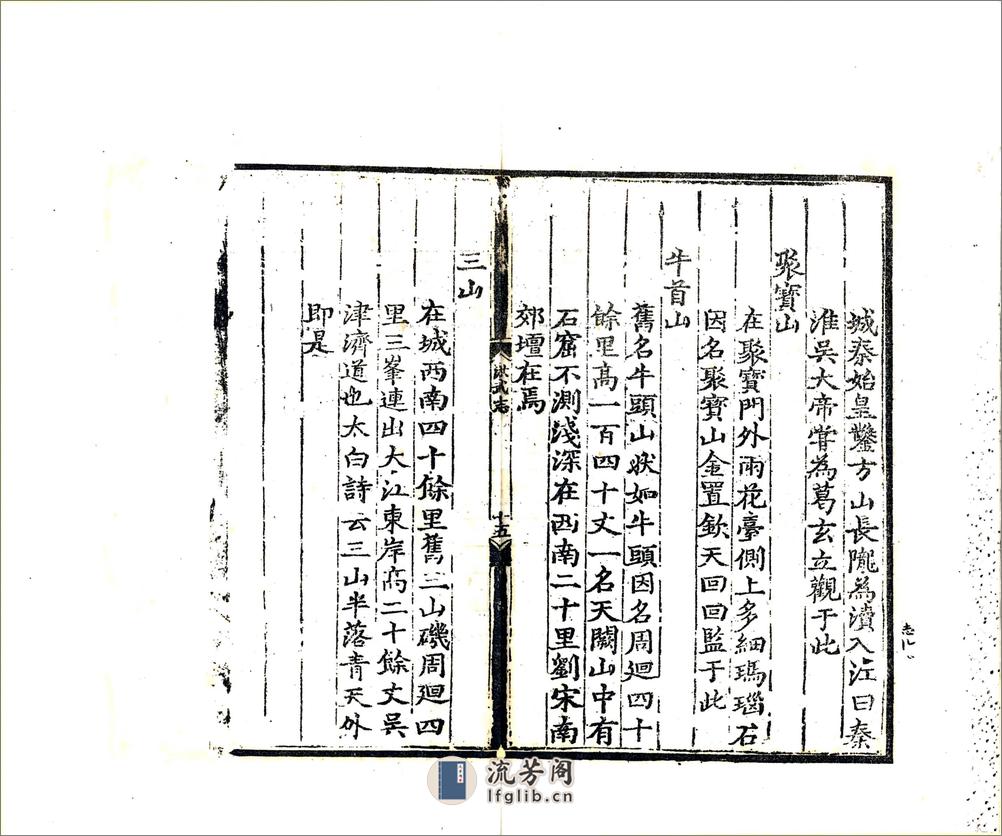 城秦始皇鑿方山長隴為瀆入江曰秦
淮吳大帝嘗為葛玄立觀于此
聚寶山
在聚寶門外雨花臺側上多細瑪瑙石
因名聚寶山金置欽天回回監于此
牛首山
舊名牛頭山狀如牛頭因名周迴四十
餘里高一百四十丈一名天闕山中有
石窟不測淺深在西南二十里劉宋南
郊壇在焉
洪武志
十五
三山
在城西南四十餘里舊三山磯周迴四
里三峯連出大江東岸高二十餘丈吳
津濟道也太白詩云三山半落青天外
即是
流芳阁
lfglib.cn